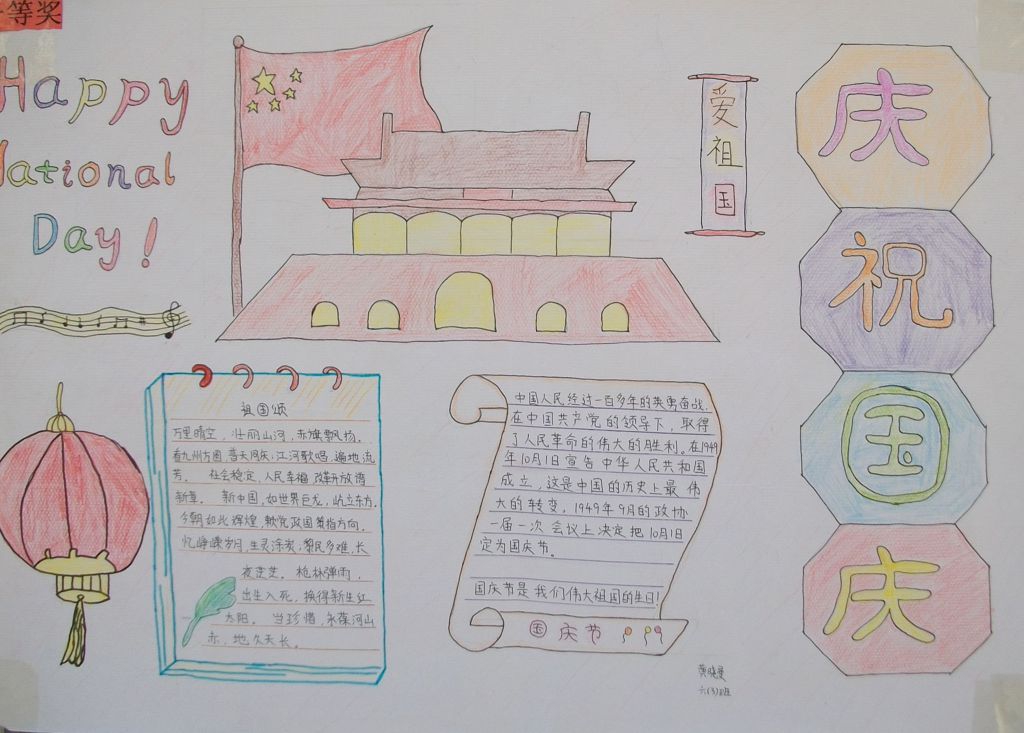 一等奖
Happy
National
Day!
爱
祖
国
庆
祝
国
庆
祖国颂
万里晴空，壮丽山河，赤旗飘扬。
看九州方圆，普天同庆，江河歌唱，遍地流
芳。 社会稳定，人民幸福 改革开放谱
新章。 新中国，如世界巨龙，屹立东方。
今朝如此辉煌，赖党政国策指方向。
忆峥嵘岁月，生灵涂炭，黎民多难，长
夜茫茫。枪林弹雨，
出生入死，换得新生红
太阳。 当珍惜，永葆河山
赤，地久天长。
中国人民经过一百多年的英勇奋战，
在中国共产党的领导下，取得
了人民革命的伟大的胜利。在1949
年10月1日宣告中华人民共和国
成立，这是中国的历史上最 伟
大的转变，1949年9月的政协
一届一次会议上决定把10月1日
定为国庆节。
国庆节是我们伟大祖国的生日！
国 庆 节
六(3)班